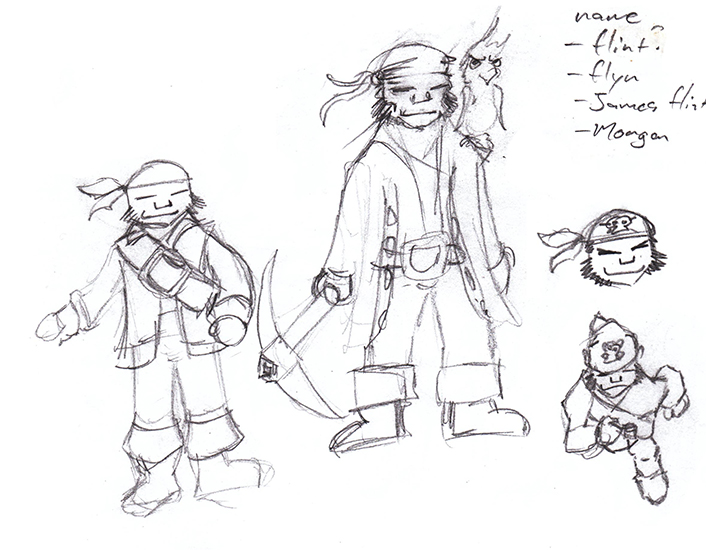 name
- flint?
- flyn
- James flint
- Moagan